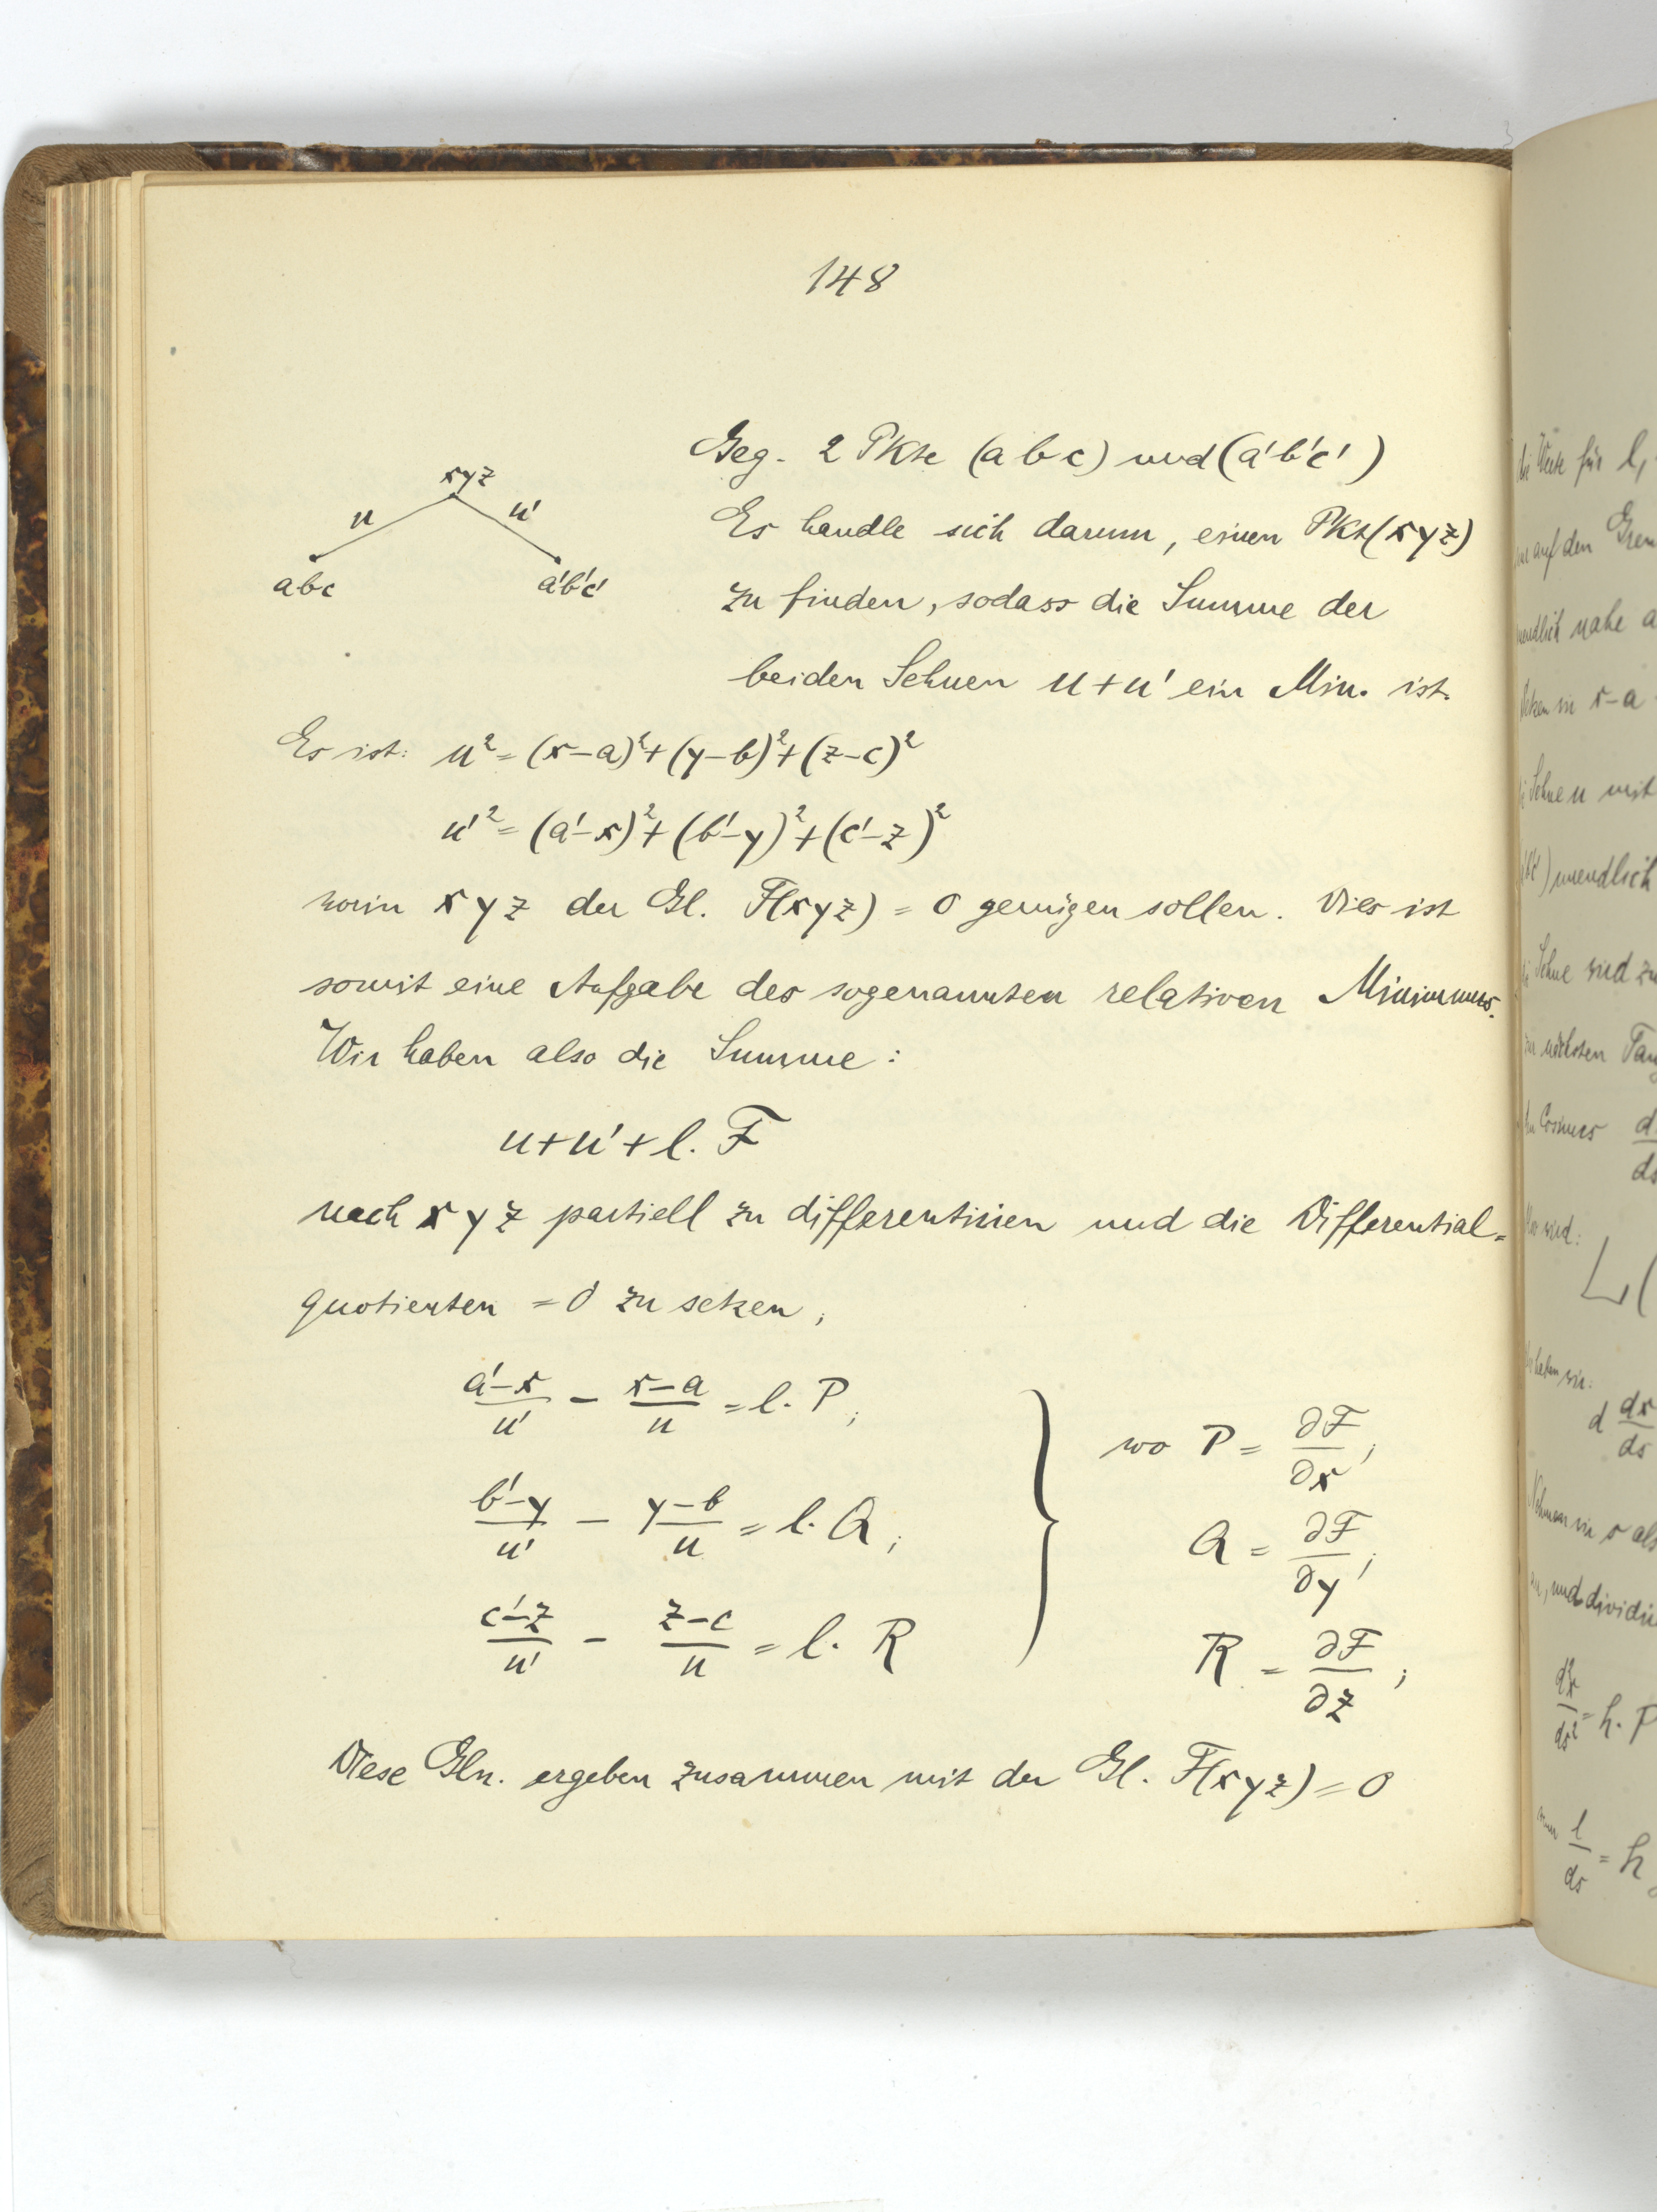 148
Geg. 2 Pkte (a b c) und (a'b'c')
xyz
u
u'
abc
a'b'c'
Es handle sich darum, einen Pkt (x y z)
zu finden, sodass die Summe der
beiden Sehnen u + u' ein Min. ist.
Es ist: u² = (x-a)² + (y-b)² + (z-c)²
u'² = (a'-x)² + (b'-y)² + (c'-z)²
worin x y z der Gl. F(xyz) = 0 genügen sollen. Dies ist
somit eine Aufgabe des sogenannten relativen Minimums.
Wir haben also die Summe:
u + u' + l. F
nach x y z partiell zu differentiieren und die Differential=
quotienten = 0 zu setzen;
(a'-x)/u' - (x-a)/u = l. P;
(b'-y)/u' - (y-b)/u = l. Q;
(c'-z)/u' - (z-c)/u = l. R
wo P = ∂F/∂x;
Q = ∂F/∂y;
R = ∂F/∂z;
Diese Gln. ergeben zusammen mit der Gl. F(xyz) = 0
die Werte für l,
auf den
nahe a
x-a
Sehne u mit
unendlich
Sehne und zu
nächsten Tan
Cosinus d
ds
L(
d dx/ds
s als
und dividi
d²x/ds² = h. P
l/ds = h